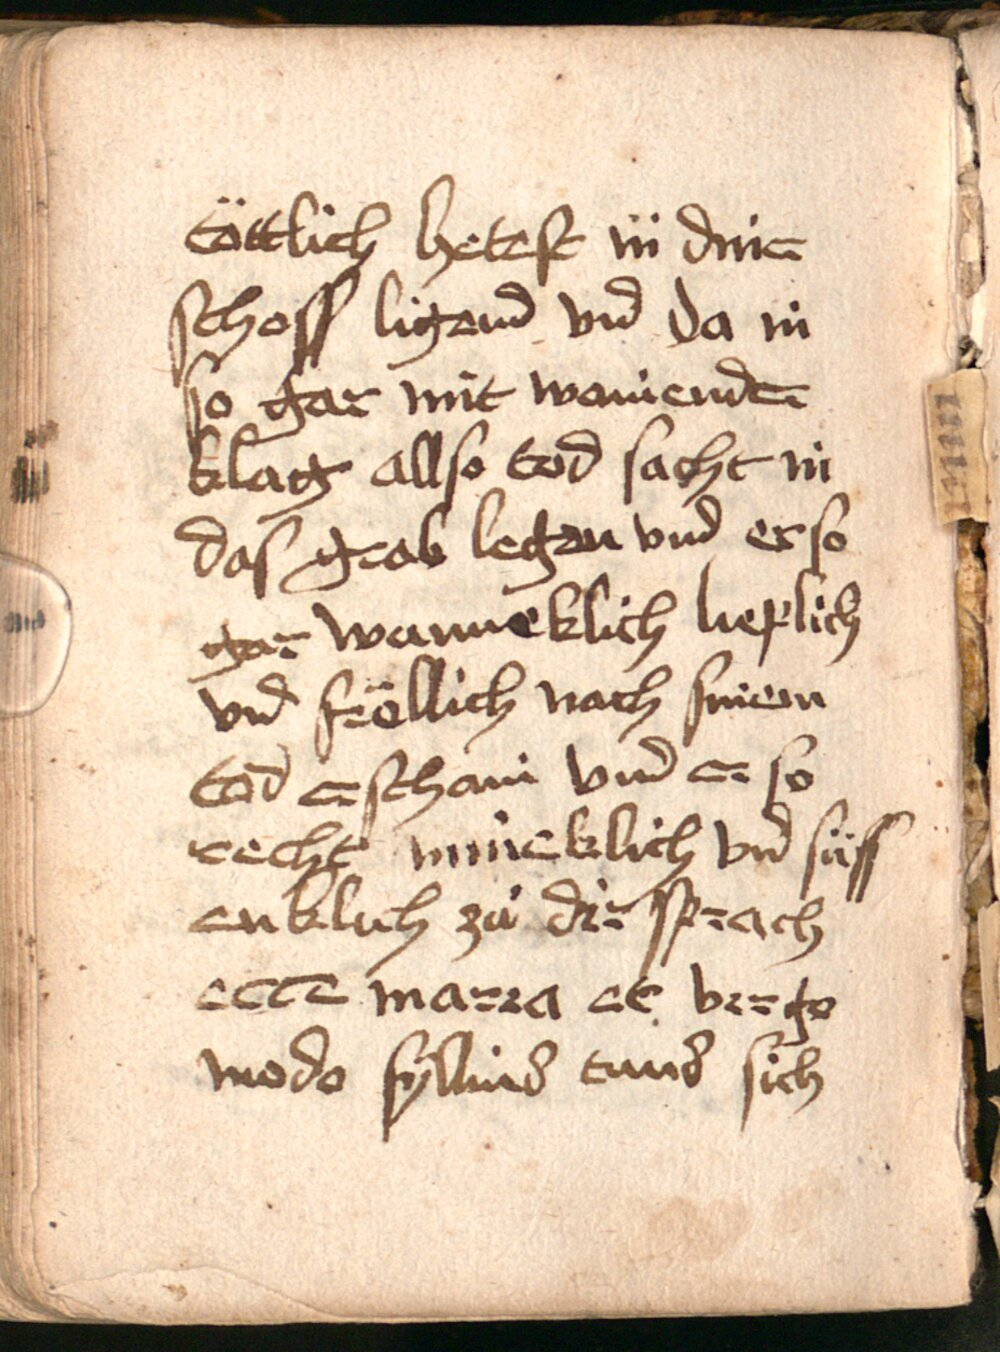 töttlich hetest in dine͞
schoss ligend vnd da in
so gar mit wainende͞
klag allso tod sacht in
das grab legen vnd er so
gar wunneklich lieplich
vnd frölich nach sinem
tod erschain vnd er so
recht minneklich vnd süss
enklich zů dir sprach
ecce maria et virgo
modo fyllius tuus sich